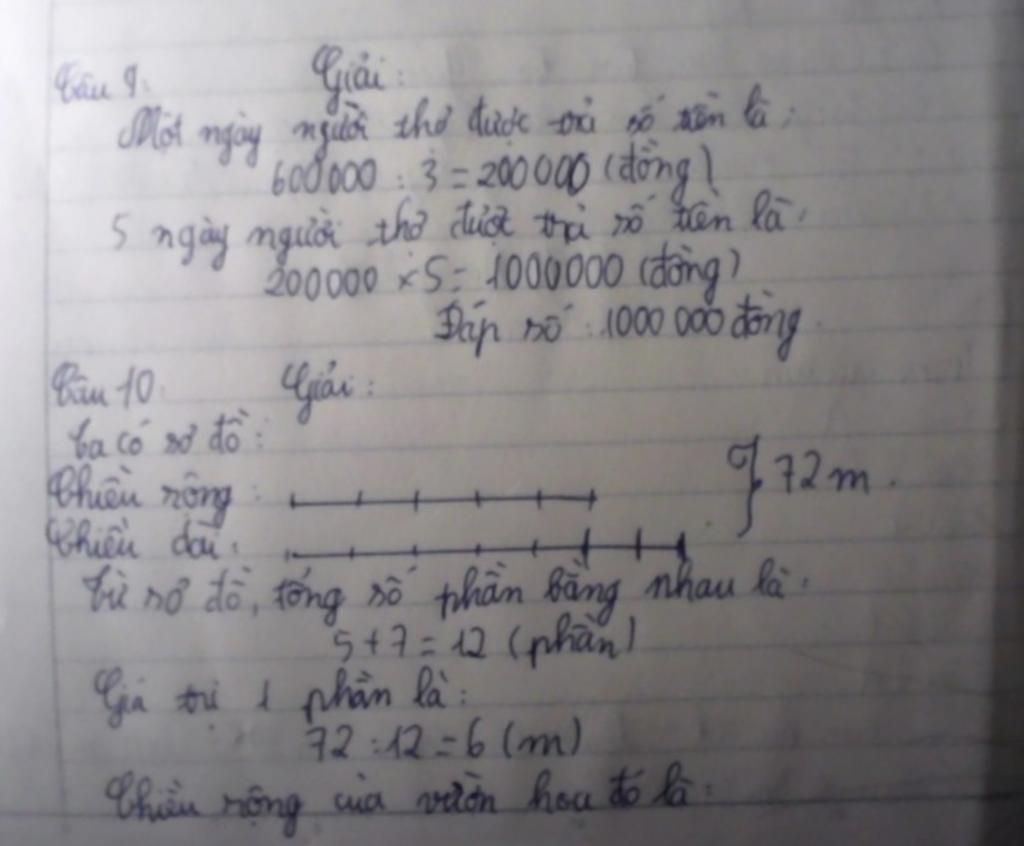 Câu 9: Giải:
Một ngày người thợ được trả số tiền là:
600000 : 3 = 200000 (đồng)
5 ngày người thợ được trả số tiền là:
200000 × 5 = 1000000 (đồng)
Đáp số: 1000 000 đồng.
Câu 10 Giải:
Ta có sơ đồ:
Chiều rộng: 72 m.
Chiều dài:
Từ sơ đồ, tổng số phần bằng nhau là:
5 + 7 = 12 (phần)
Giá trị 1 phần là:
72 : 12 = 6 (m)
Chiều rộng của vườn hoa đó là: